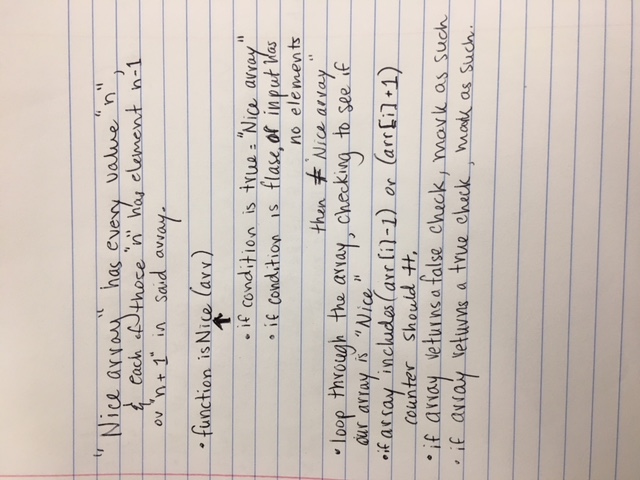 "Nice array" has every value "n",
& each of those "n" has element n-1
or "n+1" in said array.
• function isNice (arr)
• if condition is true = "Nice array"
• if condition is flase, or input has
no elements
then ≠ "Nice array"
• loop through the array, checking to see if
our array is "Nice"
• if array includes (arr[i]-1) or (arr[i]+1)
counter should ++.
• if array returns a false check, mark as such
• if array returns a true check, mark as such.